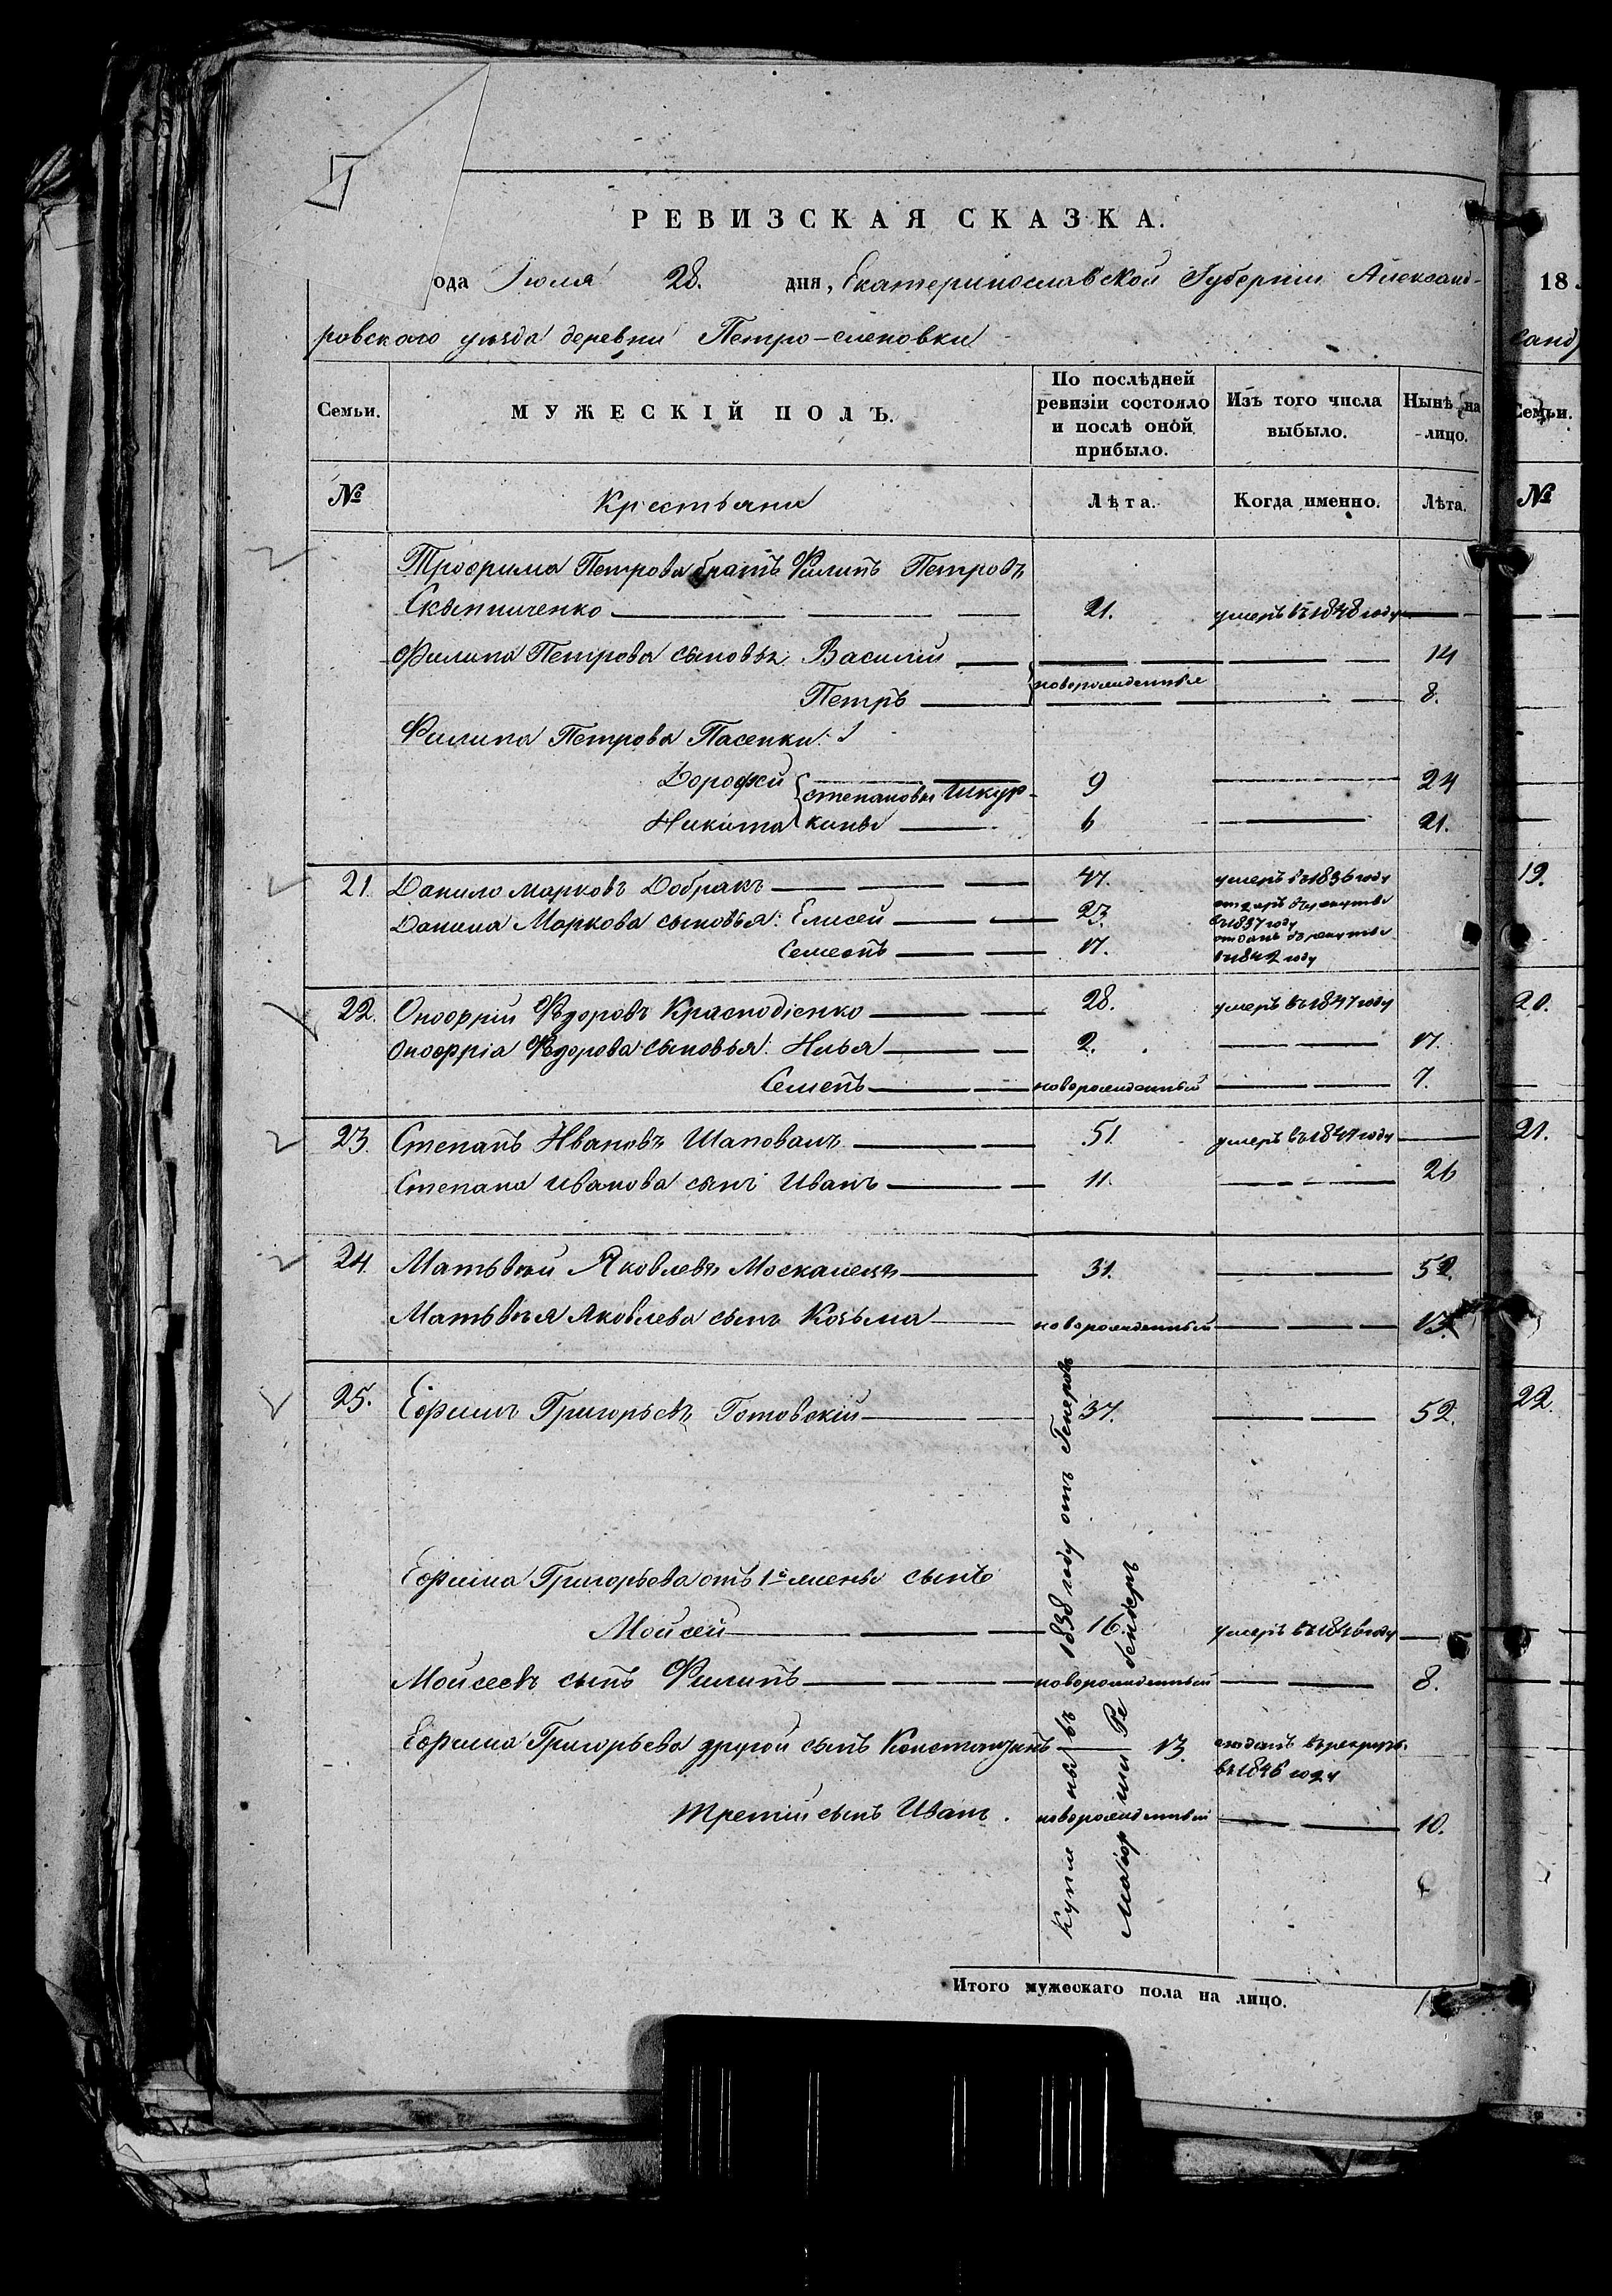 РЕВИЗСКАЯ СКАЗКА.
ода Іюля 28. дня, Екатеринославской Губерніи Александ-
ровского уѣзда деревни Петро-еленовки
Семьи.
МУЖЕСКІЙ ПОЛЪ.
По послѣдней
ревизіи состояло
и послѣ оной
прибыло.
Изъ того числа
выбыло.
Нынѣ на
лицо.
№ Крестьяне Лѣта. Когда именно. Лѣта.
Трофима Петрова братъ Филипъ Петровъ
21. умеръ въ 1848 году
Филипа Петрова сыновья: Василій 14
Петръ новорожденные 8.
Филипа Петрова Пасенки:
Дорофей 9 24
Степановы Шкур-
Никита кины 6 21.
21. Данило Марковъ Добракъ 47. умеръ въ 1836 году
Данила Маркова сыновья: Елисей 23. отданъ въ рекруты
въ 1837 году
Семенъ 17. отданъ въ рекруты
въ 1842 году
22. Онофрій Ѳедоровъ Красподіенко 28. умеръ въ 1847 году
Онофрія Ѳедорова сыновья: Илья 2. 17.
Семенъ новорожденный 7.
23. Степанъ Ивановъ Шаповалъ 51 умеръ въ 1847 году
Степана Иванова сынъ Иванъ 11. 26
24. Матьвѣй Яковлевъ Москалецъ 31. 52.
Матьвѣя Яковлева сынъ Козьма новорожденный 13.
25. Ефимъ Григорьевъ Готовскій 37. 52.
Ефима Григорьева отъ 1й жены сынъ
Мойсей 16. умеръ въ 1846 году
Мойсеевъ сынъ Филипъ новорожденный 8.
Ефима Григорьева другой сынъ Константинъ 13. отданъ в рекруты
въ 1846 году
Третій сынъ Иванъ. новорожденный 10.
Куплены въ 1838 году отъ Генералъ
Маіорши
Итого мужескаго пола на лицо.
18
санд
Семьи.
№
19.
20.
21.
22.